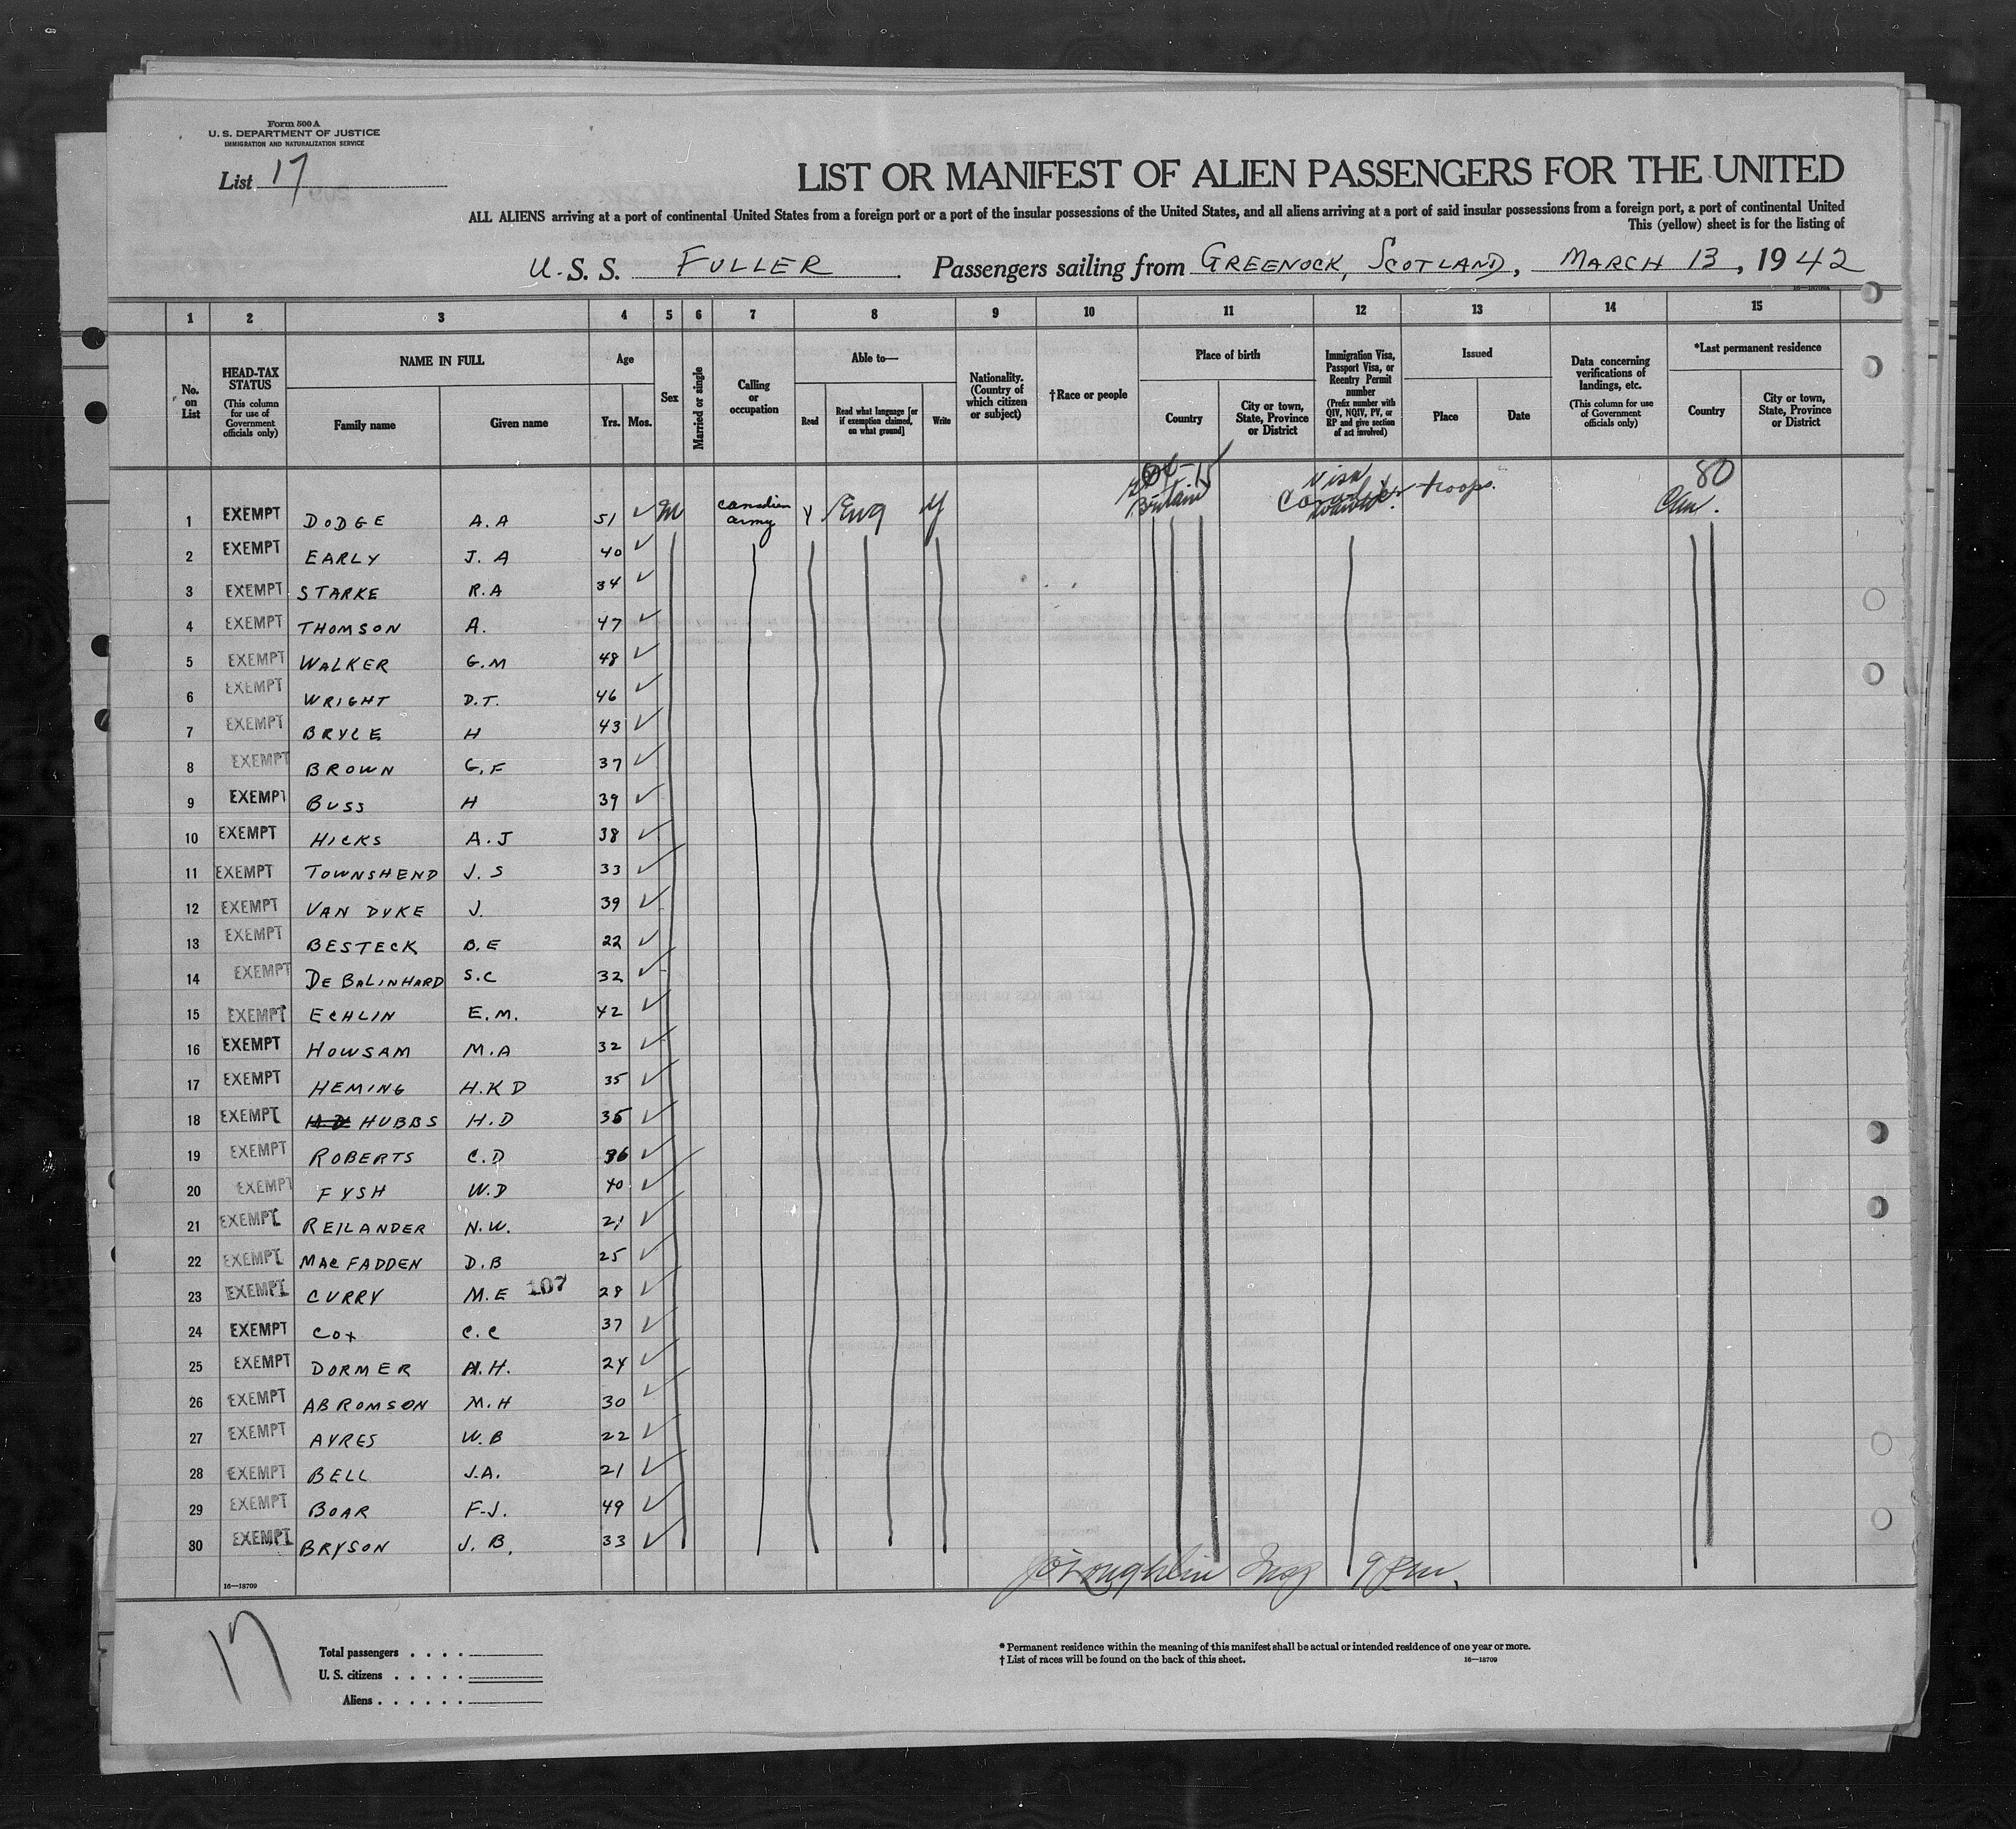 Form 500 A
U. S. DEPARTMENT OF JUSTICE
IMMIGRATION AND NATURALIZATION SERVICE
List 17
LIST OR MANIFEST OF ALIEN PASSENGERS FOR THE UNITED
ALL ALIENS arriving at a port of continental United States from a foreign port or a port of the insular possessions of the United States, and all aliens arriving at a port of said insular possessions from a foreign port, a port of continental United
This (yellow) sheet is for the listing of
U. S. S. FULLER Passengers sailing from GREENOCK, SCOTLAND, MARCH 13, 1942
1 2 3 4 5 6 7 8 9 10 11 12 13 14 15
No. on List
HEAD-TAX STATUS (This column for use of Government officials only)
NAME IN FULL
Family name
Given name
Age
Yrs. Mos.
Sex
Married or single
Calling or occupation
Able to—
Read
Read what language [or if exemption claimed, on what ground]
Write
Nationality. (Country of which citizen or subject)
†Race or people
Place of birth
Country
City or town, State, Province or District
Immigration Visa, Passport Visa, or Reentry Permit number (Prefix number with QIV, NQIV, PV, or RP and give section of act involved)
Issued
Place
Date
Data concerning verifications of landings, etc. (This column for use of Government officials only)
*Last permanent residence
Country
City or town, State, Province or District
1 EXEMPT DODGE A. A 51 M Canadian army Y Eng Y Britain Visa troops. 80 Can.
2 EXEMPT EARLY J. A 40
3 EXEMPT STARKE R. A 34
4 EXEMPT THOMSON A. 47
5 EXEMPT WALKER G. M 48
6 EXEMPT WRIGHT D. T. 46
7 EXEMPT BRYCE H 43
8 EXEMPT BROWN G. F 37
9 EXEMPT BUSS H 39
10 EXEMPT HICKS A. J 38
11 EXEMPT TOWNSHEND J. S 33
12 EXEMPT VAN DYKE J. 39
13 EXEMPT BESTECK B. E 22
14 EXEMPT DE BALINHARD S. C 32
15 EXEMPT ECHLIN E. M. 42
16 EXEMPT HOWSAM M. A 32
17 EXEMPT HEMING H. K D 35
18 EXEMPT HUBBS H. D 35
19 EXEMPT ROBERTS C. D 36
20 EXEMPT FYSH W. D 40
21 EXEMPT REILANDER N. W. 21
22 EXEMPT MAC FADDEN D. B 25
23 EXEMPT CURRY M. E 107 28
24 EXEMPT COX C. C 37
25 EXEMPT DORMER H. 24
26 EXEMPT ABROMSON M. H 30
27 EXEMPT AYRES W. B 22
28 EXEMPT BELL J. A. 21
29 EXEMPT BOAR F. J. 49
30 EXEMPT BRYSON J. B. 33
16—18709
17
Total passengers
U. S. citizens
Aliens
* Permanent residence within the meaning of this manifest shall be actual or intended residence of one year or more.
† List of races will be found on the back of this sheet.
16—18709